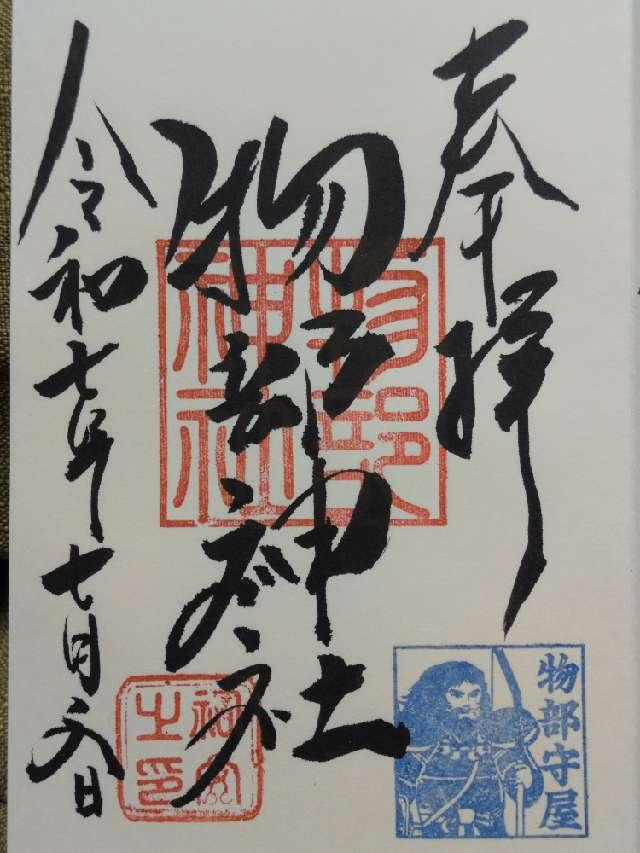 奉拝
物部神社
令和七年七月六日
物部
神社
之印
物部守屋